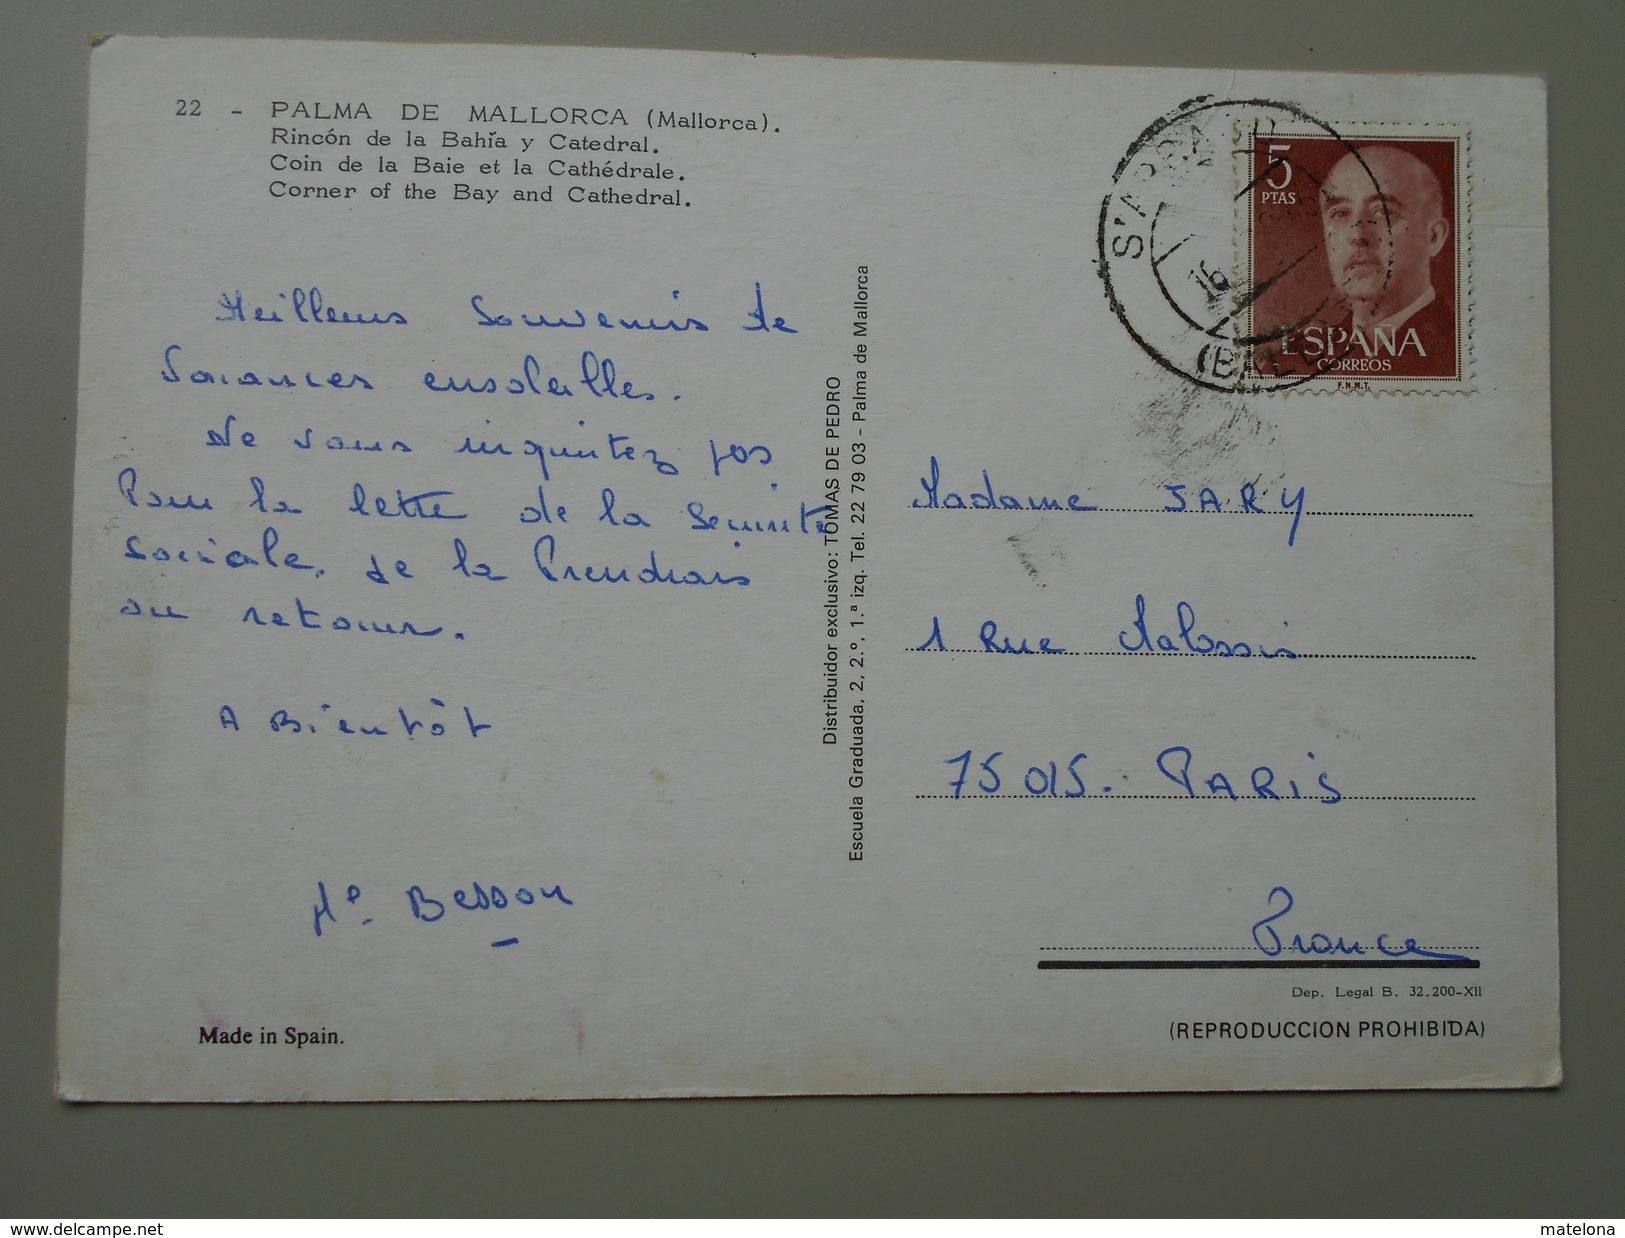 22 - PALMA DE MALLORCA (Mallorca).
Rincón de la Bahía y Catedral.
Coin de la Baie et la Cathédrale.
Corner of the Bay and Cathedral.
Meilleurs Souvenirs de
Vacances ensoleillés.
Ne vous inquietez pas
Pour la lettre de la Sécurité
Sociale. Je la Prendrais
au retour.
A Bientôt
Me. Besson
Made in Spain.
Distribuidor exclusivo: TOMAS DE PEDRO
Escuela Graduada, 2, 2.º, 1.ª izq. Tel. 22 79 03 - Palma de Mallorca
5
PTAS
ESPAÑA
CORREOS
F.N.M.T.
S'ARRA
16
Madame JARY
1 Rue
75015. PARIS
France
Dep. Legal B. 32.200-XII
(REPRODUCCION PROHIBIDA)
http://www.delcampe.net
matelona